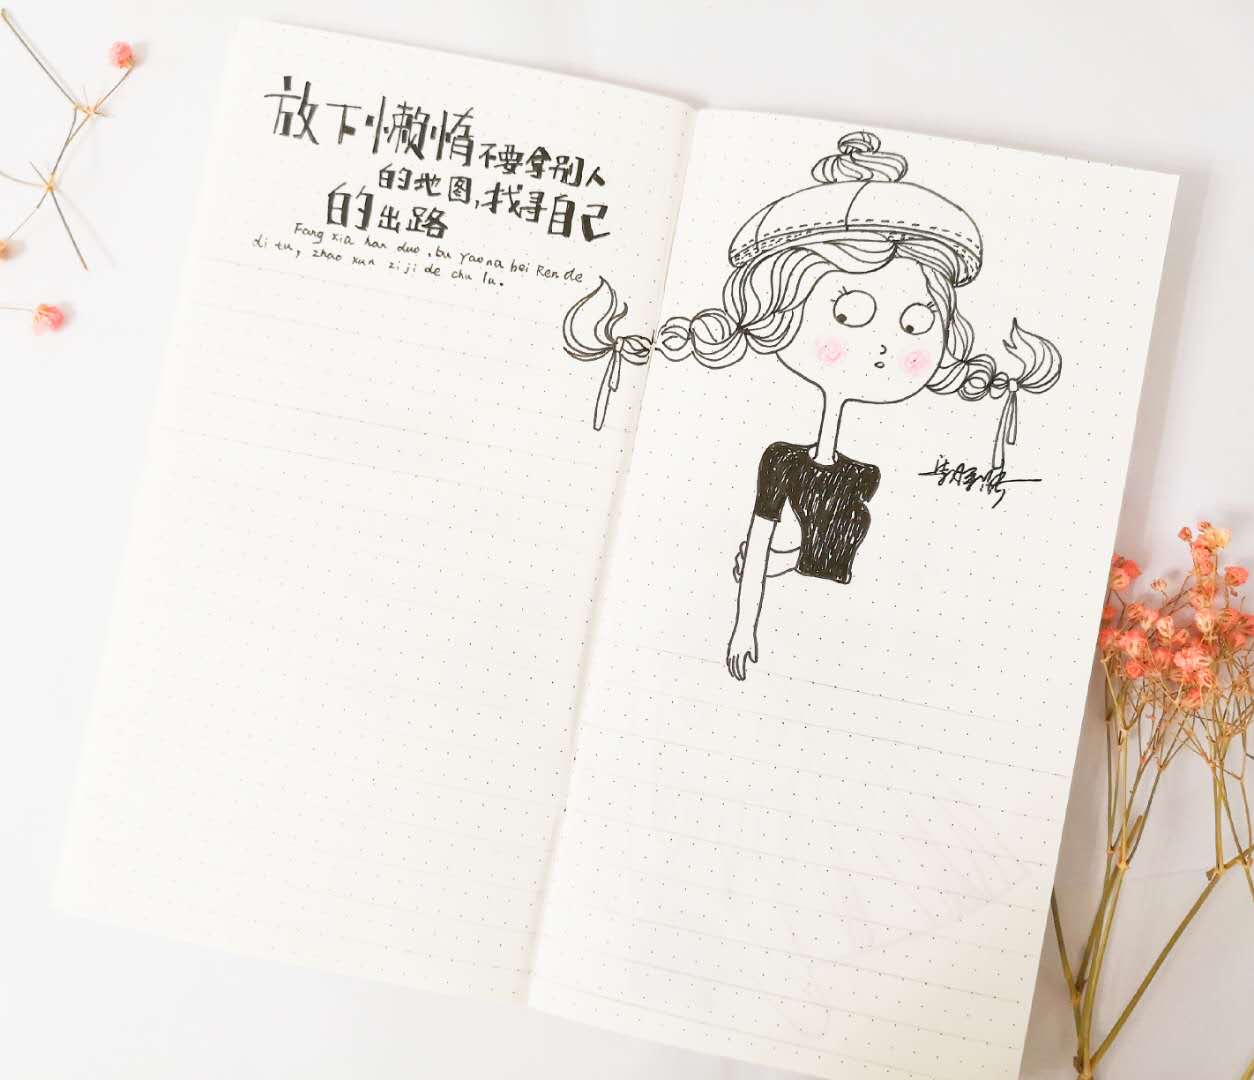 放下懒惰不要拿别人
的地图,找寻自己
的出路
Fang xia han duo, bu Yaona bei Ren de
di tu, zhao xun zi ji de chu lu.